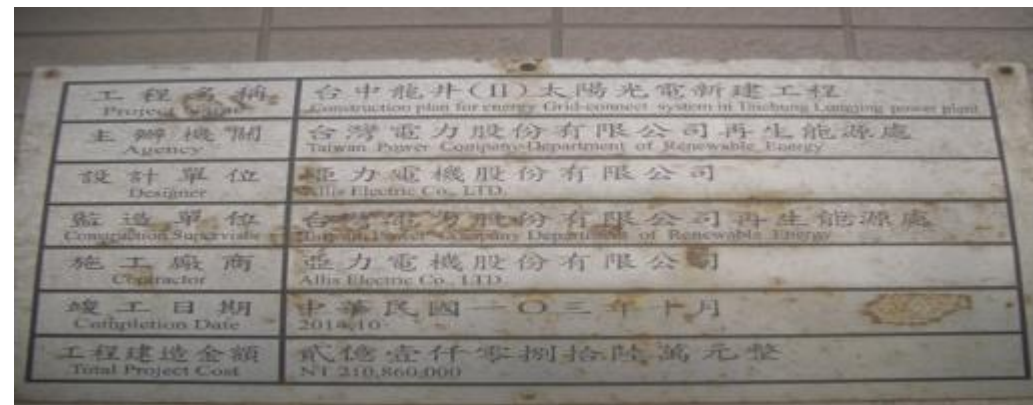 工程名稱
Project Name
台中龍井(II)太陽光電新建工程
Construction plan for energy Grid-connect system in Tinchung Lungjing power plant
主辦機關
Agency
台灣電力股份有限公司再生能源處
Taiwan Power Company Department of Renewable Energy
設計單位
Designer
亞力電機股份有限公司
Allis Electric Co., LTD.
監造單位
Construction Supervisor
台灣電力股份有限公司再生能源處
Taiwan Power Company Department of Renewable Energy
施工廠商
Contractor
亞力電機股份有限公司
Allis Electric Co., LTD.
竣工日期
Completion Date
中華民國一〇三年十月
2014,10
工程建造金額
Total Project Cost
貳億壹仟零捌拾陸萬元整
NT 210,860,000